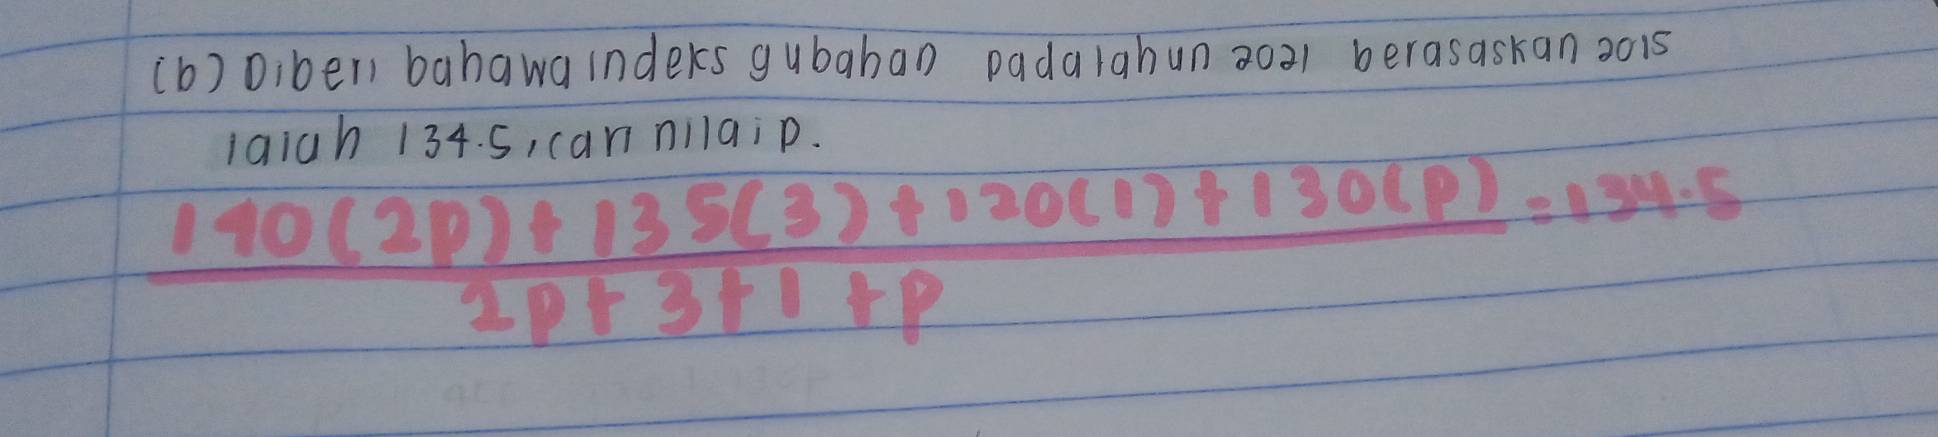 (b) Diberi bahawa indeks gubahan pada tahun 2021 berasaskan 2015
ialah 134.5, cari nilai p.
140(2p) + 135(3) + 120(1) + 130(p) = 134.5
2p + 3 + 1 + p